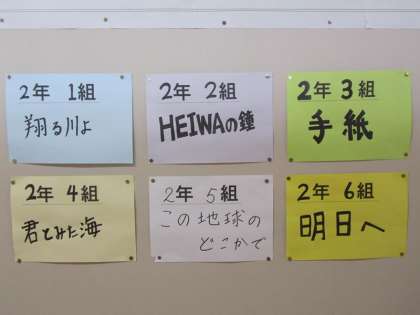 2年 1組
翔る川よ
2年 2組
HEIWAの鐘
2年 3組
手紙
2年 4組
君とみた海
2年 5組
この地球の
どこかで
2年 6組
明日へ